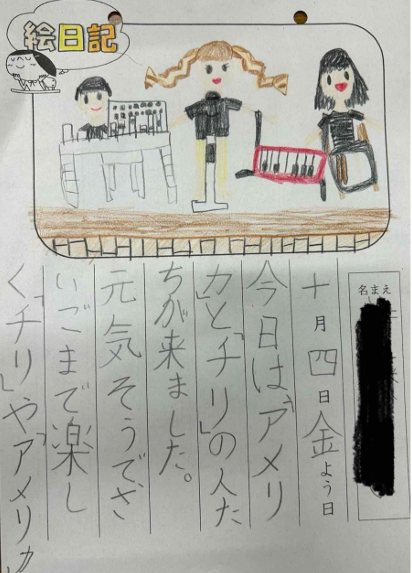 絵日記
名まえ
十月四日金よう日
今日は「アメリ
カ」と「チリ」の人た
ちが来ました。
元気そうでさ
いごまで楽し
く「チリ」や「アメリカ」